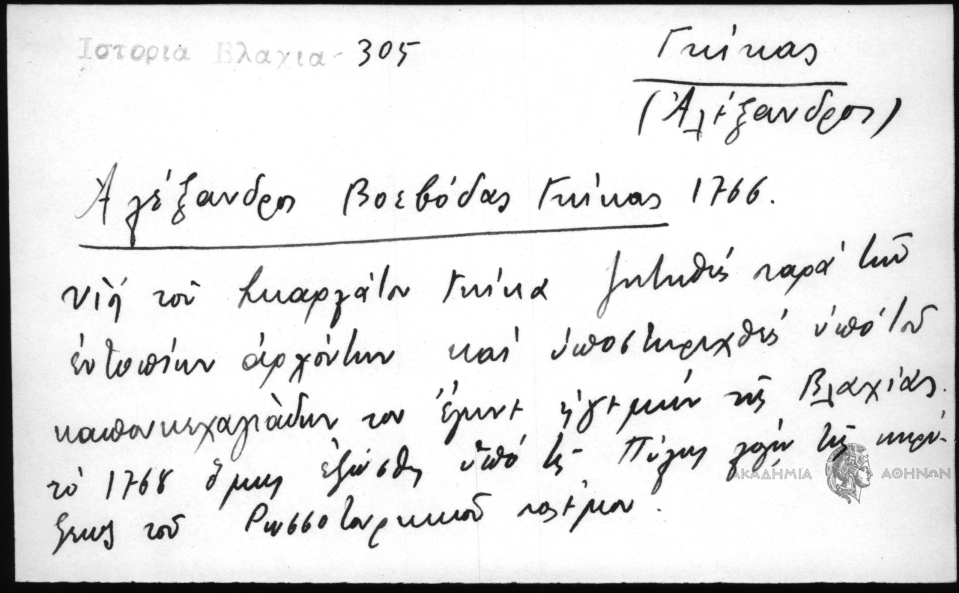 Ιστορια Βλαχια- 305
Γκίκας
(Ἀλέξανδρος)
Ἀλέξανδρος Βοεβόδας Γκίκας 1766.
υἱὸς τοῦ Σκαρλάτου Γκίκα ζητηθεὶς παρὰ τῶν
ἐντοπίων ἀρχόντων καὶ ὑποστηριχθεὶς ὑπὸ τοῦ
καπουκεχαγιάδων του ἔγινε ἡγεμὼν τῆς Βλαχίας.
τὸ 1768 ὅμως ἐξώσθη ὑπὸ τῆς Πύλης λόγῳ τῆς κηρύ-
ξεως τοῦ Ρωσσοτουρκικοῦ πολέμου.
ΑΚΑΔΗΜΙΑ ΑΘΗΝΩΝ